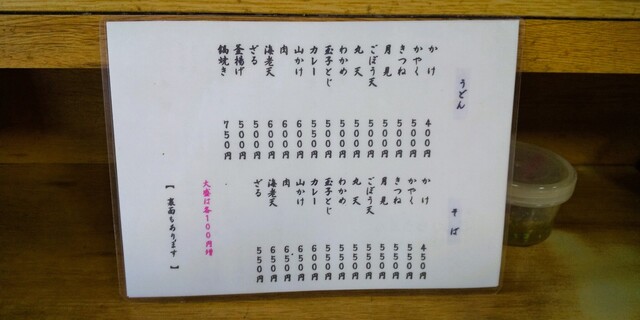 うどん
かけ 400円
かやく 500円
きつね 500円
月見 500円
ごぼう天 500円
丸天 500円
わかめ 500円
玉子とじ 500円
カレー 550円
山かけ 600円
肉 600円
海老天 600円
ざる 500円
釜揚げ 500円
鍋焼き 750円
そば
かけ 450円
かやく 550円
きつね 550円
月見 550円
ごぼう天 550円
丸天 550円
わかめ 550円
玉子とじ 550円
カレー 600円
山かけ 650円
肉 650円
海老天 650円
ざる 550円
大盛は各100円増
【 裏面もあります 】